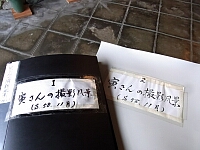 1
寅さんの撮影風景
(S.58.11月)
2
寅さんの撮影風景
(S.58.11月)